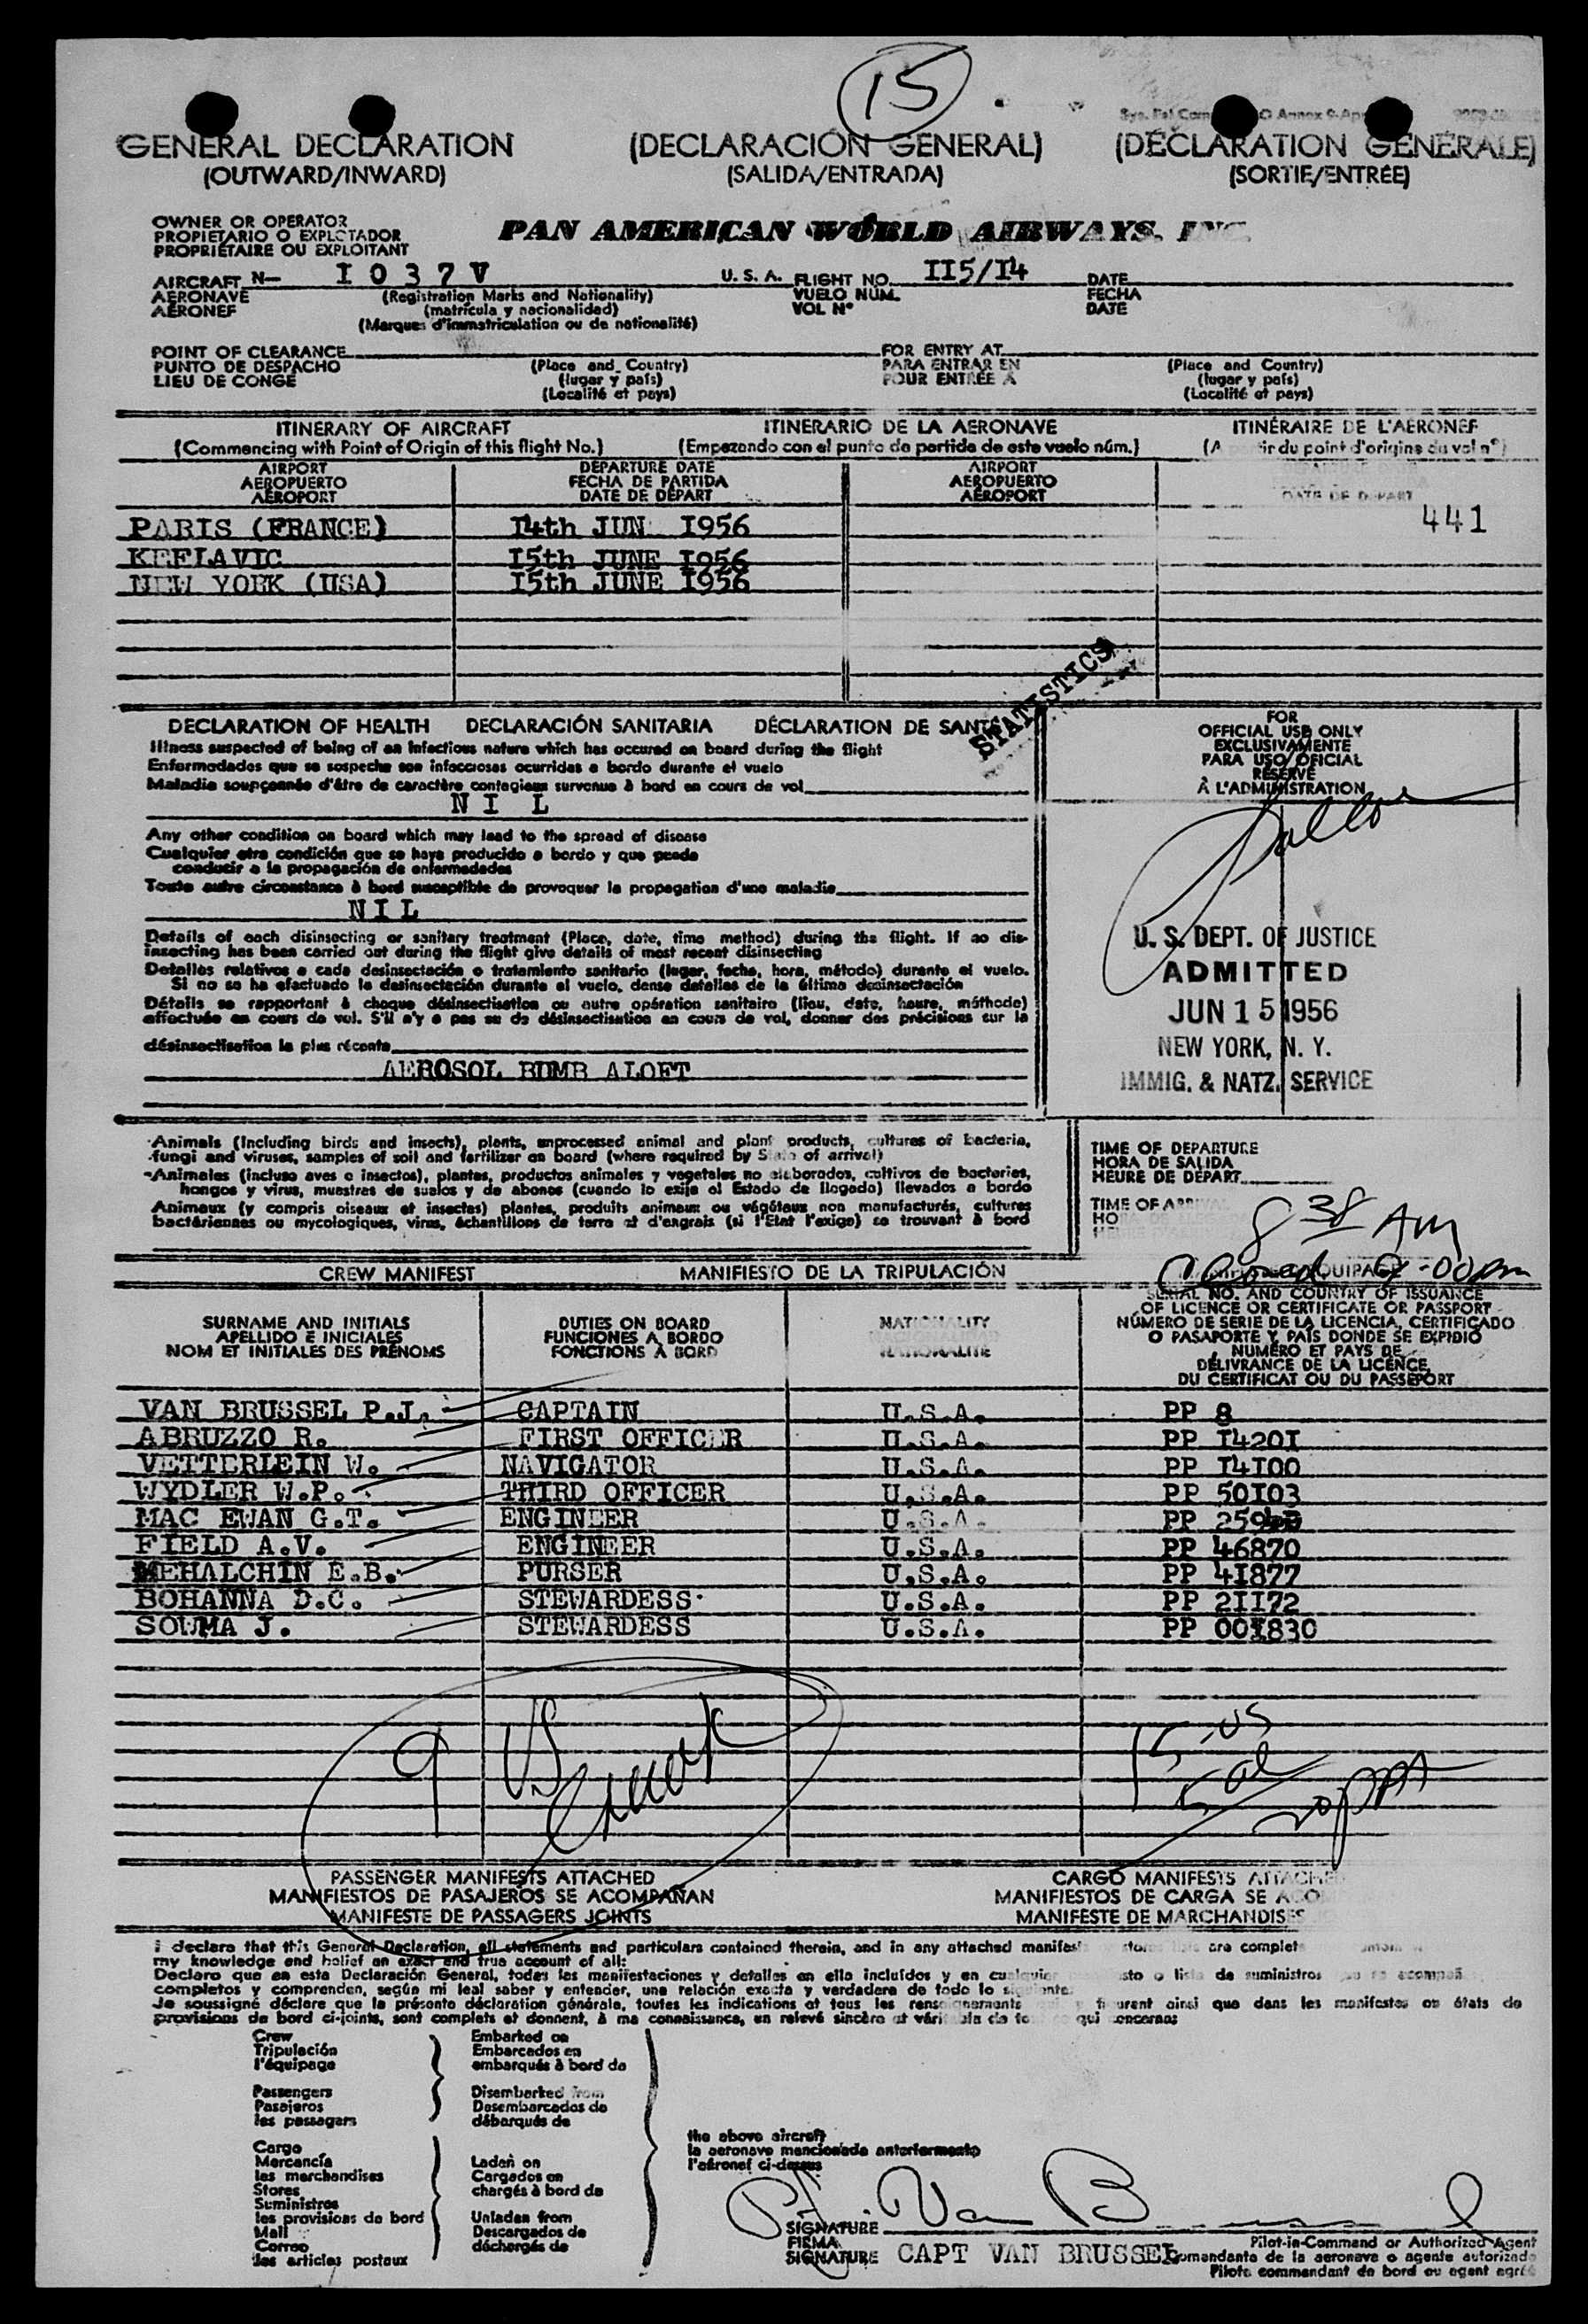 15
GENERAL DECLARATION (DECLARACIÓN GENERAL) (DÉCLARATION GÉNÉRALE)
(OUTWARD/INWARD) (SALIDA/ENTRADA) (SORTIE/ENTRÉE)
OWNER OR OPERATOR
PROPIETARIO O EXPLOTADOR
PROPRIÉTAIRE OU EXPLOITANT
PAN AMERICAN WORLD AIRWAYS, INC.
AIRCRAFT N- I 0 3 7 V U.S.A. FLIGHT NO. II5/I4 DATE
AERONAVE (Registration Marks and Nationality) VUELO NÚM. FECHA
AÉRONEF (matrícula y nacionalidad) VOL N° DATE
(Marques d'immatriculation ou de nationalité)
POINT OF CLEARANCE FOR ENTRY AT
PUNTO DE DESPACHO (Place and Country) PARA ENTRAR EN (Place and Country)
LIEU DE CONGÉ (lugar y país) POUR ENTRÉE À (lugar y país)
(Localité et pays) (Localité et pays)
ITINERARY OF AIRCRAFT ITINERARIO DE LA AERONAVE ITINÉRAIRE DE L'AÉRONEF
(Commencing with Point of Origin of this flight No.) (Empezando con el punto de partida de este vuelo núm.) (A tir du point d'origine du vol n°)
AIRPORT DEPARTURE DATE AIRPORT
AEROPUERTO FECHA DE PARTIDA AEROPUERTO
AÉROPORT DATE DE DÉPART AÉROPORT DATE DE DÉPART
PARIS (FRANCE) I4th JUN I956 441
KEFLAVIC I5th JUNE I956
NEW YORK (USA) I5th JUNE I956
STATISTICS
DECLARATION OF HEALTH DECLARACIÓN SANITARIA DÉCLARATION DE SANTÉ
Illness suspected of being of an infectious nature which has occured on board during the flight
Enfermedades que se sospeche son infecciosas ocurridas a bordo durante el vuelo
Maladie soupçonnée d'être de caractère contagieux survenue à bord en cours de vol
N I L
Any other condition on board which may lead to the spread of disease
Cualquier otra condición que se haya producido a bordo y que puede
conducir a la propagación de enfermedades
Toute autre circonstance à bord susceptible de provoquer la propagation d'une maladie
NIL
Details of each disinsecting or sanitary treatment (Place, date, time method) during the flight. If no dis-
insecting has been carried out during the flight give details of most recent disinsecting
Detalles relativos a cada desinsectación o tratamiento sanitario (lugar, fecha, hora, método) durante el vuelo.
Si no se ha efectuado la desinsectación durante el vuelo, dense detalles de la última desinsectación
Détails se rapportant à chaque désinsectisation ou autre opération sanitaire (lieu, date, heure, méthode)
effectuée en cours de vol. S'il n'y a pas eu de désinsectisation en cours de vol, donner des précisions sur la
désinsectisation la plus récente
AEROSOL BOMB ALOFT
FOR
OFFICIAL USE ONLY
EXCLUSIVAMENTE
PARA USO OFICIAL
RÉSERVÉ
À L'ADMINISTRATION
U. S. DEPT. OF JUSTICE
ADMITTED
JUN 15 1956
NEW YORK, N. Y.
IMMIG. & NATZ. SERVICE
Animals (Including birds and insects), plants, unprocessed animal and plant products, cultures of bacteria,
fungi and viruses, samples of soil and fertilizer on board (where required by State of arrival)
Animales (incluso aves o insectos), plantas, productos animales y vegetales no elaborados, cultivos de bacterias,
hongos y virus, muestras de suelos y de abonos (cuando lo exija el Estado de llegada) llevados a bordo
Animaux (y compris oiseaux et insectes) plantes, produits animaux ou végétaux non manufacturés, cultures
bactériennes ou mycologiques, virus, échantillons de terre et d'engrais (si l'Etat l'exige) se trouvant à bord
TIME OF DEPARTURE
HORA DE SALIDA
HEURE DE DÉPART
TIME OF ARRIVAL
8 38 AM
CREW MANIFEST MANIFIESTO DE LA TRIPULACIÓN
SURNAME AND INITIALS
APELLIDO E INICIALES
NOM ET INITIALES DES PRÉNOMS
DUTIES ON BOARD
FUNCIONES A BORDO
FONCTIONS À BORD
NATIONALITY
NACIONALIDAD
NATIONALITÉ
SERIAL NO. AND COUNTRY OF ISSUANCE
OF LICENCE OR CERTIFICATE OR PASSPORT
NÚMERO DE SERIE DE LA LICENCIA, CERTIFICADO
O PASAPORTE Y PAÍS DONDE SE EXPIDIÓ
NUMÉRO ET PAYS DE
DÉLIVRANCE DE LA LICENCE,
DU CERTIFICAT OU DU PASSEPORT
VAN BRUSSEL P.J. CAPTAIN U.S.A. PP 8
ABRUZZO R. FIRST OFFICER U.S.A. PP I420I
VETTERLEIN W. NAVIGATOR U.S.A. PP I4I00
WYDLER W.P. THIRD OFFICER U.S.A. PP 50I03
MAC EWAN G.T. ENGINEER U.S.A. PP
FIELD A.V. ENGINEER U.S.A. PP 46870
MEHALCHIN E.B. PURSER U.S.A. PP 4I877
BOHANNA D.C. STEWARDESS U.S.A. PP 2II72
SOWMA J. STEWARDESS U.S.A. PP 00I830
9
PASSENGER MANIFESTS ATTACHED CARGO MANIFESTS ATTACHED
MANIFIESTOS DE PASAJEROS SE ACOMPAÑAN MANIFIESTOS DE CARGA SE ACOM
MANIFESTE DE PASSAGERS JOINTS MANIFESTE DE MARCHANDISES
I declare that this General Declaration, all statements and particulars contained therein, and in any attached manifest stores lists are complete
my knowledge and belief an exact and true account of all:
Declaro que en esta Declaración General, todas las manifestaciones y detalles en ella incluídos y en cualquier sto o lista de suministros que se acompañ
completos y comprenden, según mi leal saber y entender, una relación exacta y verdadera de todo lo siguiente:
Je soussigné déclare que la présente déclaration générale, toutes les indications et tous les renseignements figurent ainsi que dans les manifestes ou états de
provisions de bord ci-joints, sont complets et donnent, à ma connaissance, un relevé sincère et véritable de tout ce qui concernas
Crew Embarked on
Tripulación Embarcados en
l'équipage embarqués à bord de
Passengers Disembarked from
Pasajeros Desembarcados de
les passagers débarqués de
the above aircraft
la aeronave mencionada anteriormente
l'aéronef ci-dessus
Cargo
Mercancía Laden on
les marchandises Cargados en
Stores chargés à bord de
Suministros
les provisions de bord Unladen from
Mail Descargados de
Correo déchargés de
les articles postaux
P.J. Van Brussel
SIGNATURE
FIRMA
SIGNATURE CAPT VAN BRUSSEL
Pilot-in-Command or Authorized Agent
Comandante de la aeronave o agente autorizado
Pilote commandant de bord ou agent agréé